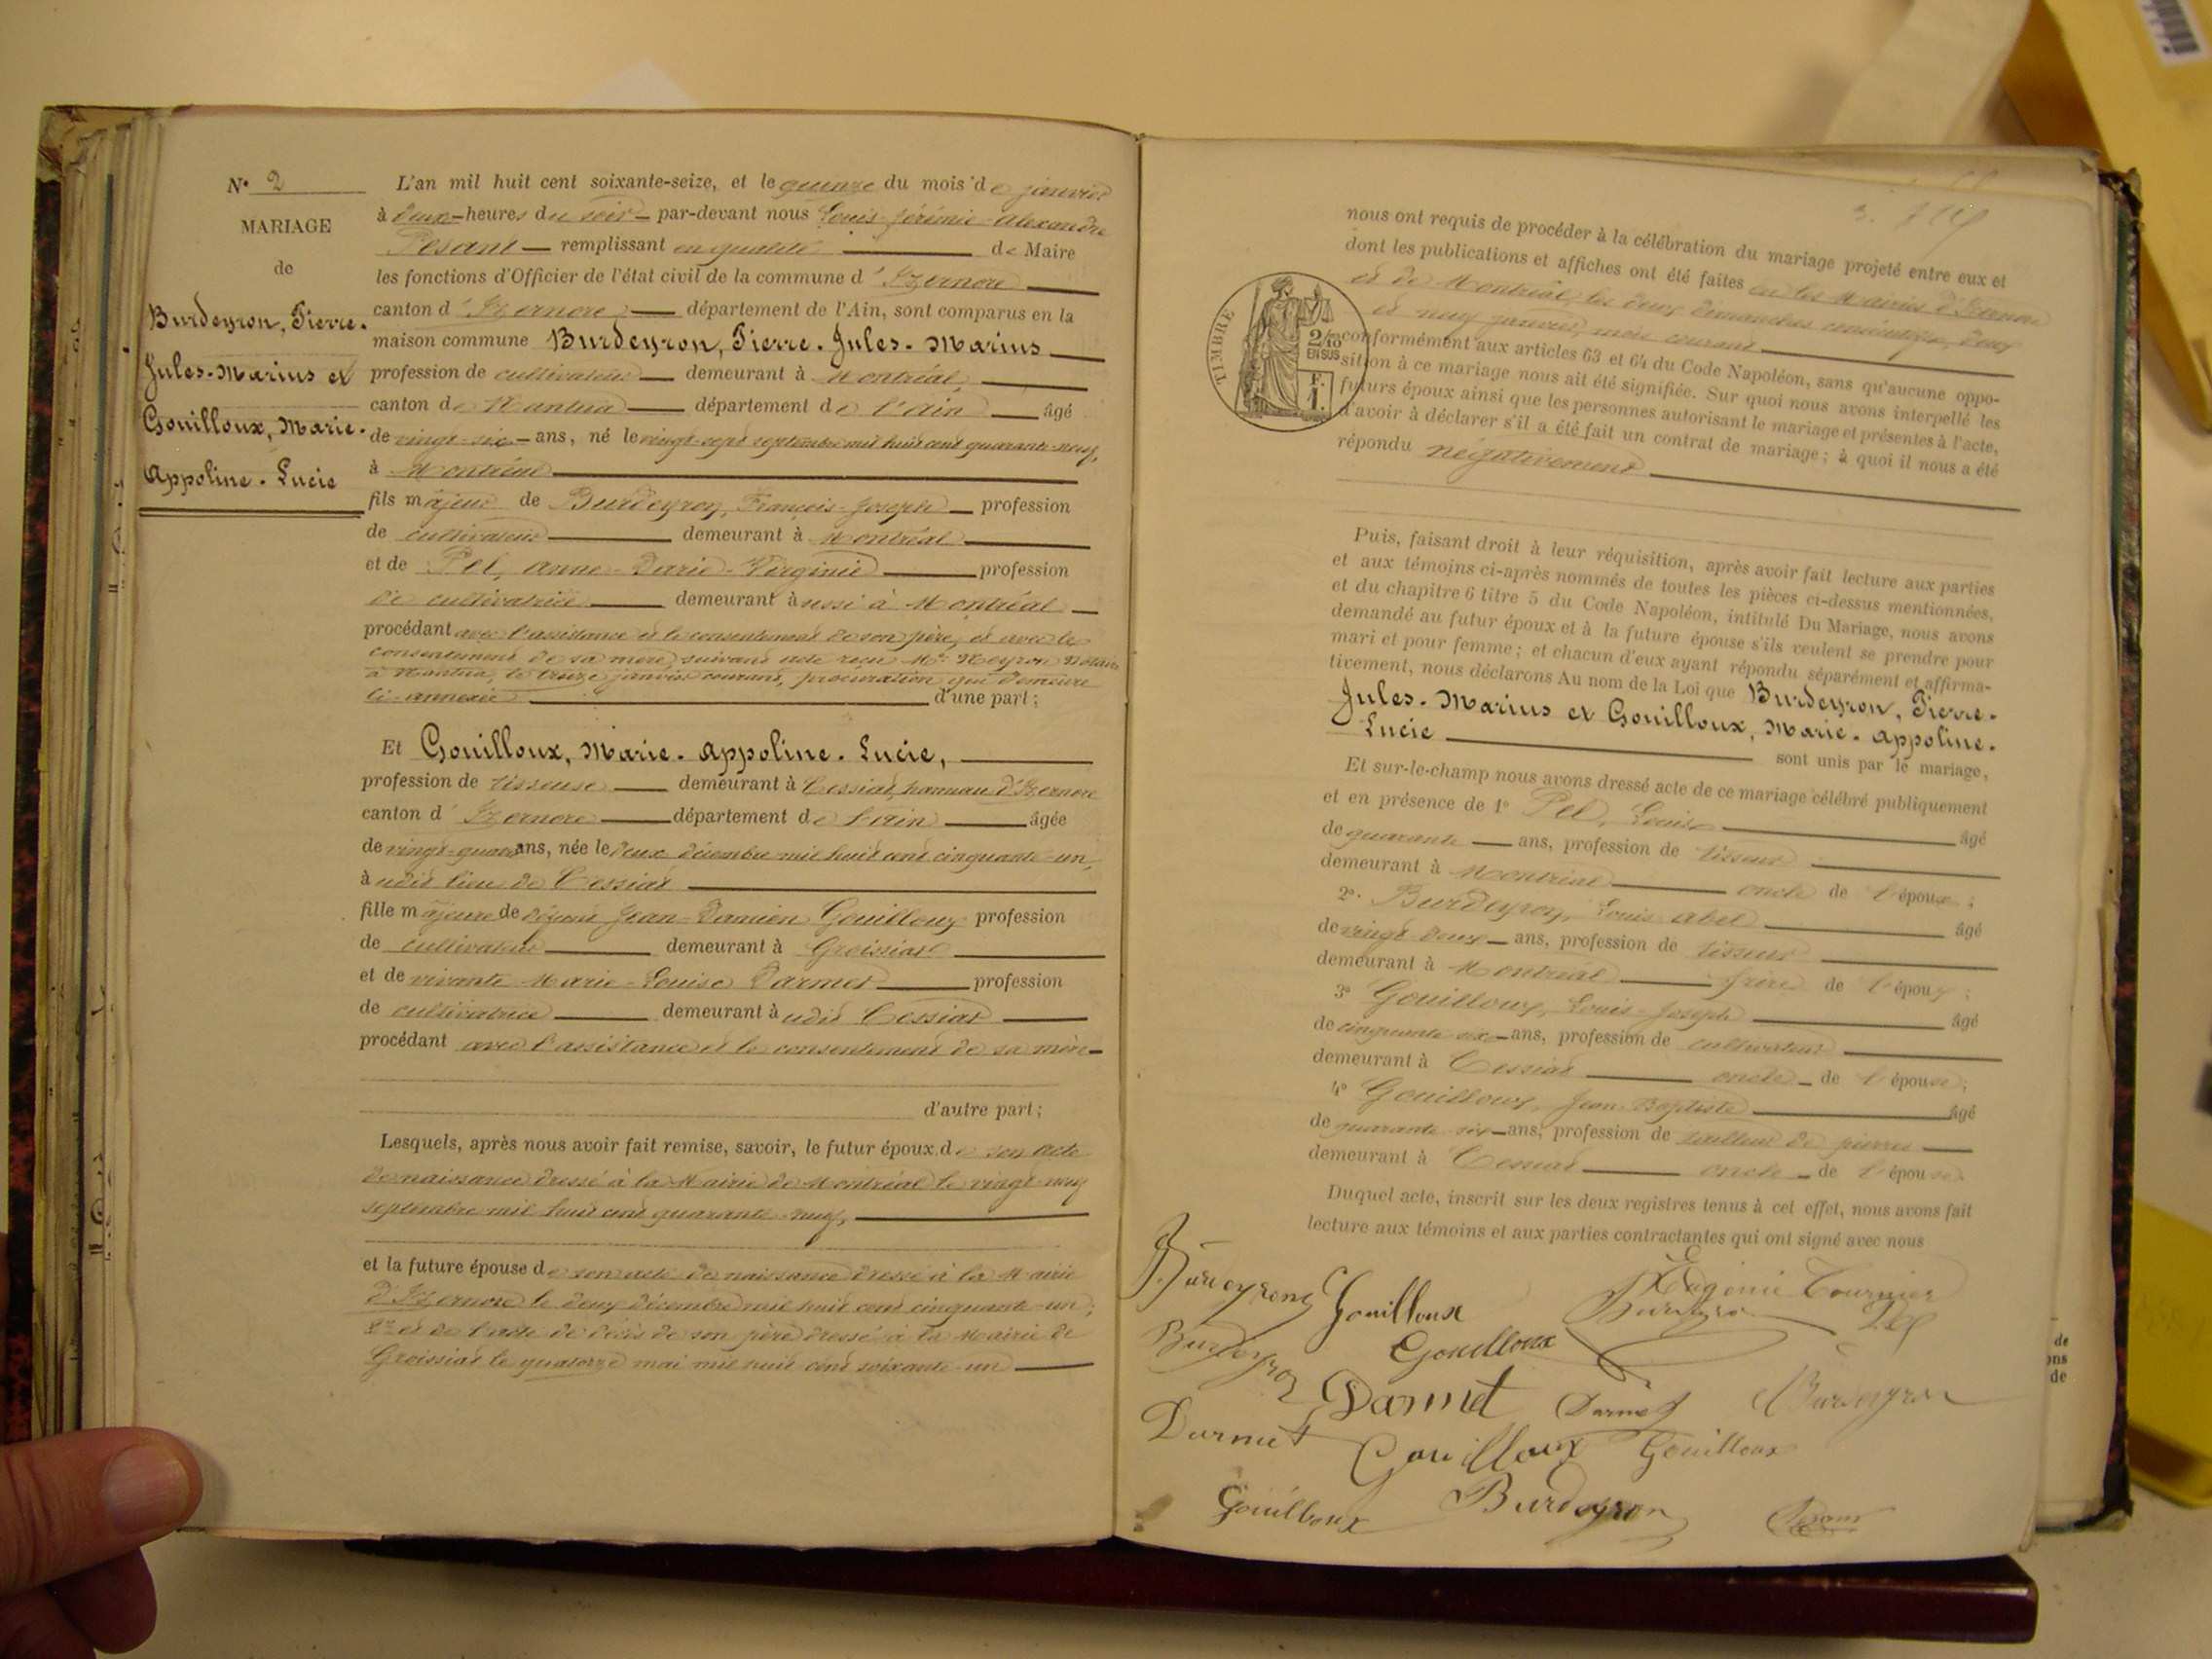 N° 2
MARIAGE
de
Burdeyron, Pierre-
Jules-Marius et
Gouilloux, Marie-
Appoline-Lucie
L'an mil huit cent soixante-seize, et le quinze du mois de janvier
à deux heures du soir par-devant nous Louis-Jérémie-Alexandre
Pesant remplissant en qualité de Maire
les fonctions d'Officier de l'état civil de la commune d'Izernore
canton d'Izernore département de l'Ain, sont comparus en la
maison commune Burdeyron, Pierre-Jules-Marius
profession de cultivateur demeurant à Montréal,
canton de Nantua département de l'Ain âgé
de vingt-six ans, né le vingt-sept septembre mil huit cent quarante-neuf,
à Montréal
fils majeur de Burdeyron, François-Joseph profession
de cultivateur demeurant à Montréal
et de Pel, Anne-Marie-Virginie profession
de cultivatrice demeurant aussi à Montréal
procédant avec l'assistance et le consentement de son père, et avec le
consentement de sa mère, suivant acte reçu Me Neyron Notaire
à Nantua, le treize janvier courant, procuration qui demeure
ci-annexée d'une part;
Et Gouilloux, Marie-Appoline-Lucie,
profession de tisseuse demeurant à Cessiat, hameau d'Izernore
canton d'Izernore département de l'Ain âgée
de vingt-quatre ans, née le deux décembre mil huit cent cinquante-un,
à udit lieu de Cessiat
fille majeure de défunt Jean-Damien Gouilloux profession
de cultivateur demeurant à Groissiat
et de vivante Marie-Louise Darmet profession
de cultivatrice demeurant à udit Cessiat
procédant avec l'assistance et le consentement de sa mère
d'autre part;
Lesquels, après nous avoir fait remise, savoir, le futur époux de son acte
de naissance dressé à la Mairie de Montréal le vingt-neuf
septembre mil huit cent quarante-neuf,
et la future épouse de son acte de naissance dressé à la Mairie
d'Izernore le deux décembre mil huit cent cinquante-un;
2° et de l'acte de décès de son père dressé à la Mairie de
Groissiat le quatorze mai mil huit cent soixante-un
nous ont requis de procéder à la célébration du mariage projeté entre eux et
dont les publications et affiches ont été faites en les Mairies d'Izernore
et de Montréal, les deux dimanches consécutifs, deux
et neuf janvier, mois courant
conformément aux articles 63 et 64 du Code Napoléon, sans qu'aucune oppo-
sition à ce mariage nous ait été signifiée. Sur quoi nous avons interpellé les
futurs époux ainsi que les personnes autorisant le mariage et présentes à l'acte,
d'avoir à déclarer s'il a été fait un contrat de mariage; à quoi il nous a été
répondu négativement
TIMBRE
2/10
EN SUS
F.
1.
Puis, faisant droit à leur réquisition, après avoir fait lecture aux parties
et aux témoins ci-après nommés de toutes les pièces ci-dessus mentionnées,
et du chapitre 6 titre 5 du Code Napoléon, intitulé Du Mariage, nous avons
demandé au futur époux et à la future épouse s'ils veulent se prendre pour
mari et pour femme; et chacun d'eux ayant répondu séparément et affirma-
tivement, nous déclarons Au nom de la Loi que Burdeyron, Pierre-
Jules-Marius et Gouilloux, Marie-Appoline-
Lucie
sont unis par le mariage,
Et sur-le-champ nous avons dressé acte de ce mariage célébré publiquement
et en présence de 1° Pel, Louis âgé
de quarante ans, profession de tisseur
demeurant à Montréal oncle de l'époux;
2° Burdeyron, Louis Abel âgé
de vingt-deux ans, profession de tisseur
demeurant à Montréal frère de l'époux;
3° Gouilloux, Louis-Joseph âgé
de cinquante-six ans, profession de cultivateur
demeurant à Cessiat oncle de l'épouse;
4° Gouilloux, Jean-Baptiste âgé
de quarante-six ans, profession de tailleur de pierres
demeurant à Cessiat oncle de l'épouse
Duquel acte, inscrit sur les deux registres tenus à cet effet, nous avons fait
lecture aux témoins et aux parties contractantes qui ont signé avec nous
Burdeyron Gouilloux Eugénie Tournier
Burdeyron Gouilloux Burdeyron Pel
Darmet Darmet Burdeyron
Darmet Gouilloux Gouilloux
Gouilloux Burdeyron Pesant
de
ons
de